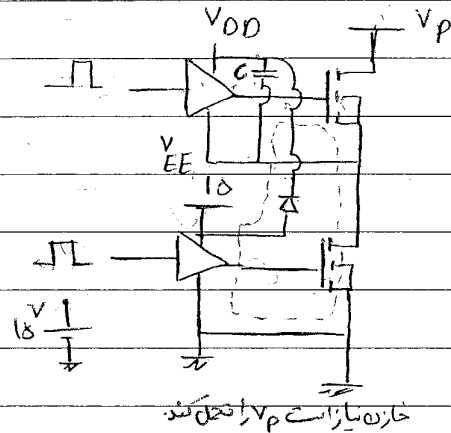 V_DD
V_P
C
V_EE
۱۵
۱۵ V
خازن نیاز است V_P را تحمل کند.